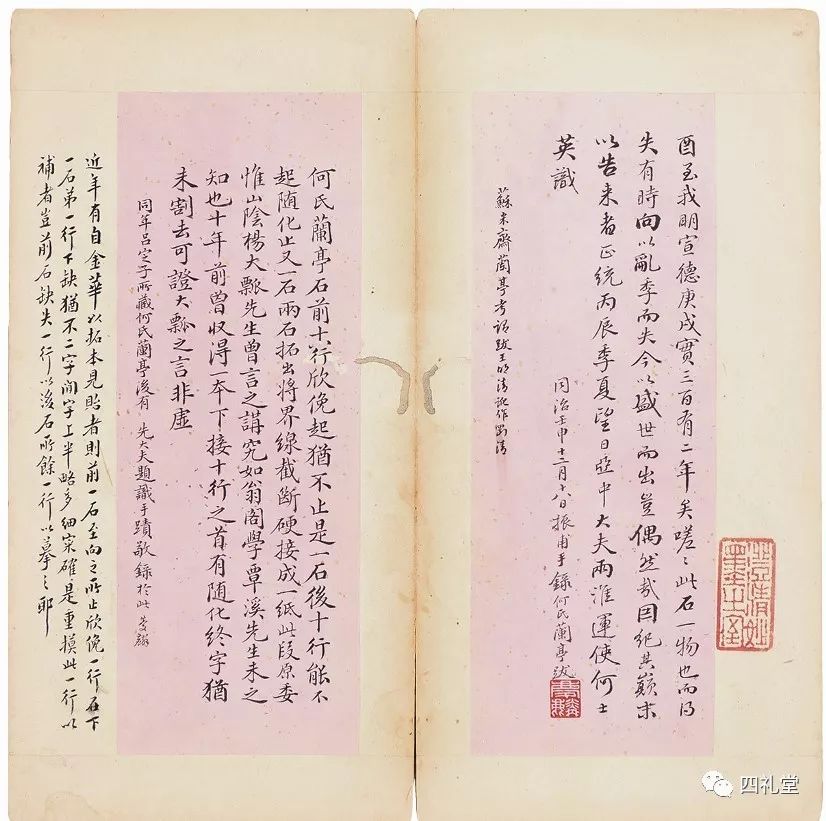 酉至我明宣德庚戌實三百有二年矣嗟〻此石一物也而得
失有時向以亂季而失今以盛世而出豈偶然哉因紀其巔末
以告来者正統丙辰季夏望日亞中大夫兩淮運使何士
英識
同治壬申十二月十八日振甫手錄何氏蘭亭跋
蘇米齋蘭亭考語跋王明清訛作劉清
何氏蘭亭石前十八行欣俛起猶不止是一石後十行能不
起随化止又一石兩石拓出將界線截斷硬接成一紙此段原委
惟山陰楊大瓢先生曾言之講究如翁閣學覃溪先生未之
知也十年前曾収得一本下接十行之首有随化終字猶
未割去可證大瓢之言非虛
同年呂定子所藏何氏蘭亭後有 先大夫題識手蹟敬錄於此
近年有自金華以拓本見貽者則前一石至向之所止欣俛一行石下
一石弟一行下缺猶不二字間字上半略多細案確是重摸此一行以
補者豈前石缺失一行以後石所餘一行以摹之耶
四礼堂